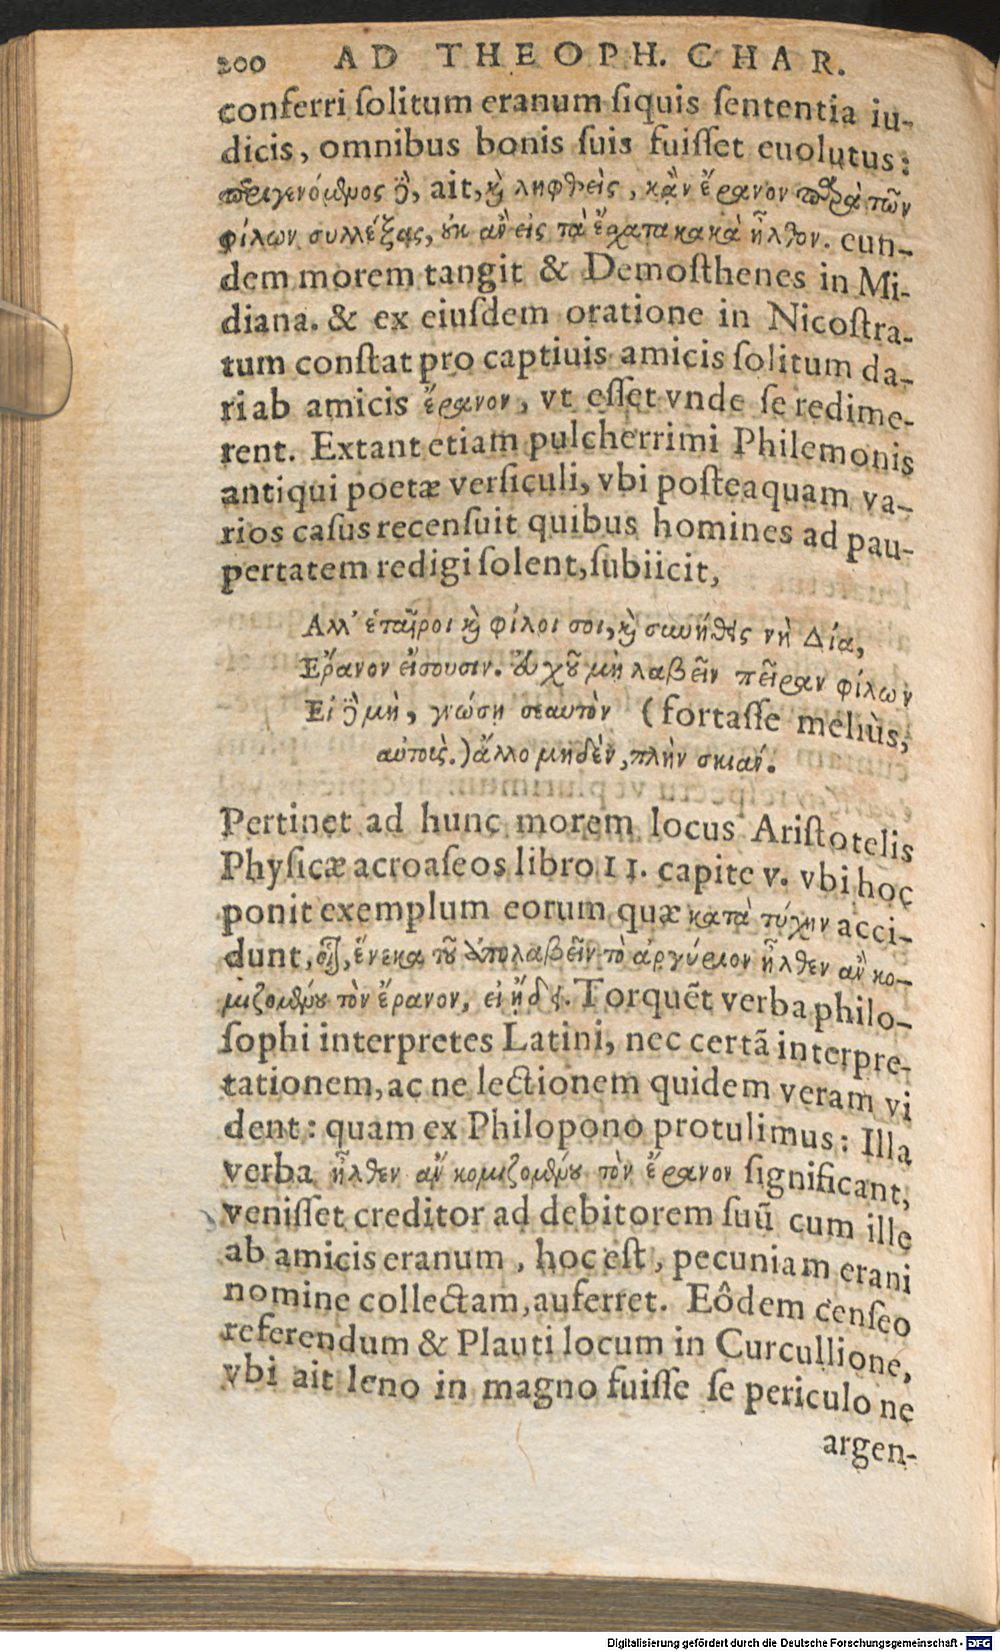 200 AD THEOPH. CHAR.
conferri ſolitum eranum ſiquis ſententia iu-
dicis, omnibus bonis ſuis fuiſſet euolutus:
περιγενόμενος δὲ, ait, καὶ ληφθεὶς, κἂν ἔρανον παρὰ τῶν
φίλων συλλέξας, οὐκ ἂν εἰς τὰ ἔσχατα κακὰ ἦλθον. eun-
dem morem tangit & Demoſthenes in Mi-
diana. & ex eiuſdem oratione in Nicoſtra-
tum conſtat pro captiuis amicis ſolitum da-
ri ab amicis ἔρανον, vt eſſet vnde ſe redime-
rent. Extant etiam pulcherrimi Philemonis
antiqui poetæ verſiculi, vbi poſteaquam va-
rios caſus recenſuit quibus homines ad pau-
pertatem redigi ſolent, ſubiicit,
Αλλ' ἑταῖροι καὶ φίλοι σοι, καὶ συνήθεις νὴ Δία,
Ερανον εἴσουσιν. εὔχου μὴ λαβεῖν πεῖραν φίλων
Εἰ δὲ μὴ, γνώσῃ σεαυτὸν (fortaſſe meliùs,
αὐτοὺς.) ἄλλο μηδὲν, πλὴν σκιάν.
Pertinet ad hunc morem locus Ariſtotelis
Phyſicæ acroaſeos libro II. capite v. vbi hoc
ponit exemplum eorum quæ κατὰ τύχην acci-
dunt, οἷον, ἕνεκα τοῦ ἀπολαβεῖν τὸ ἀργύριον ἦλθεν ἂν κο-
μιζομένου τὸν ἔρανον, εἰ ᾔδει. Torquẽt verba philo-
ſophi interpretes Latini, nec certã interpre-
tationem, ac ne lectionem quidem veram vi
dent: quam ex Philopono protulimus: Illa
verba ἦλθεν ἂν κομιζομένου τὸν ἔρανον significant,
veniſſet creditor ad debitorem ſuũ cum ille
ab amicis eranum, hoc eſt, pecuniam erani
nomine collectam, auferret. Eôdem cenſeo
referendum & Plauti locum in Curcullione,
vbi ait leno in magno fuiſſe ſe periculo ne
argen-
Digitalisierung gefördert durch die Deutsche Forschungsgemeinschaft - DFG